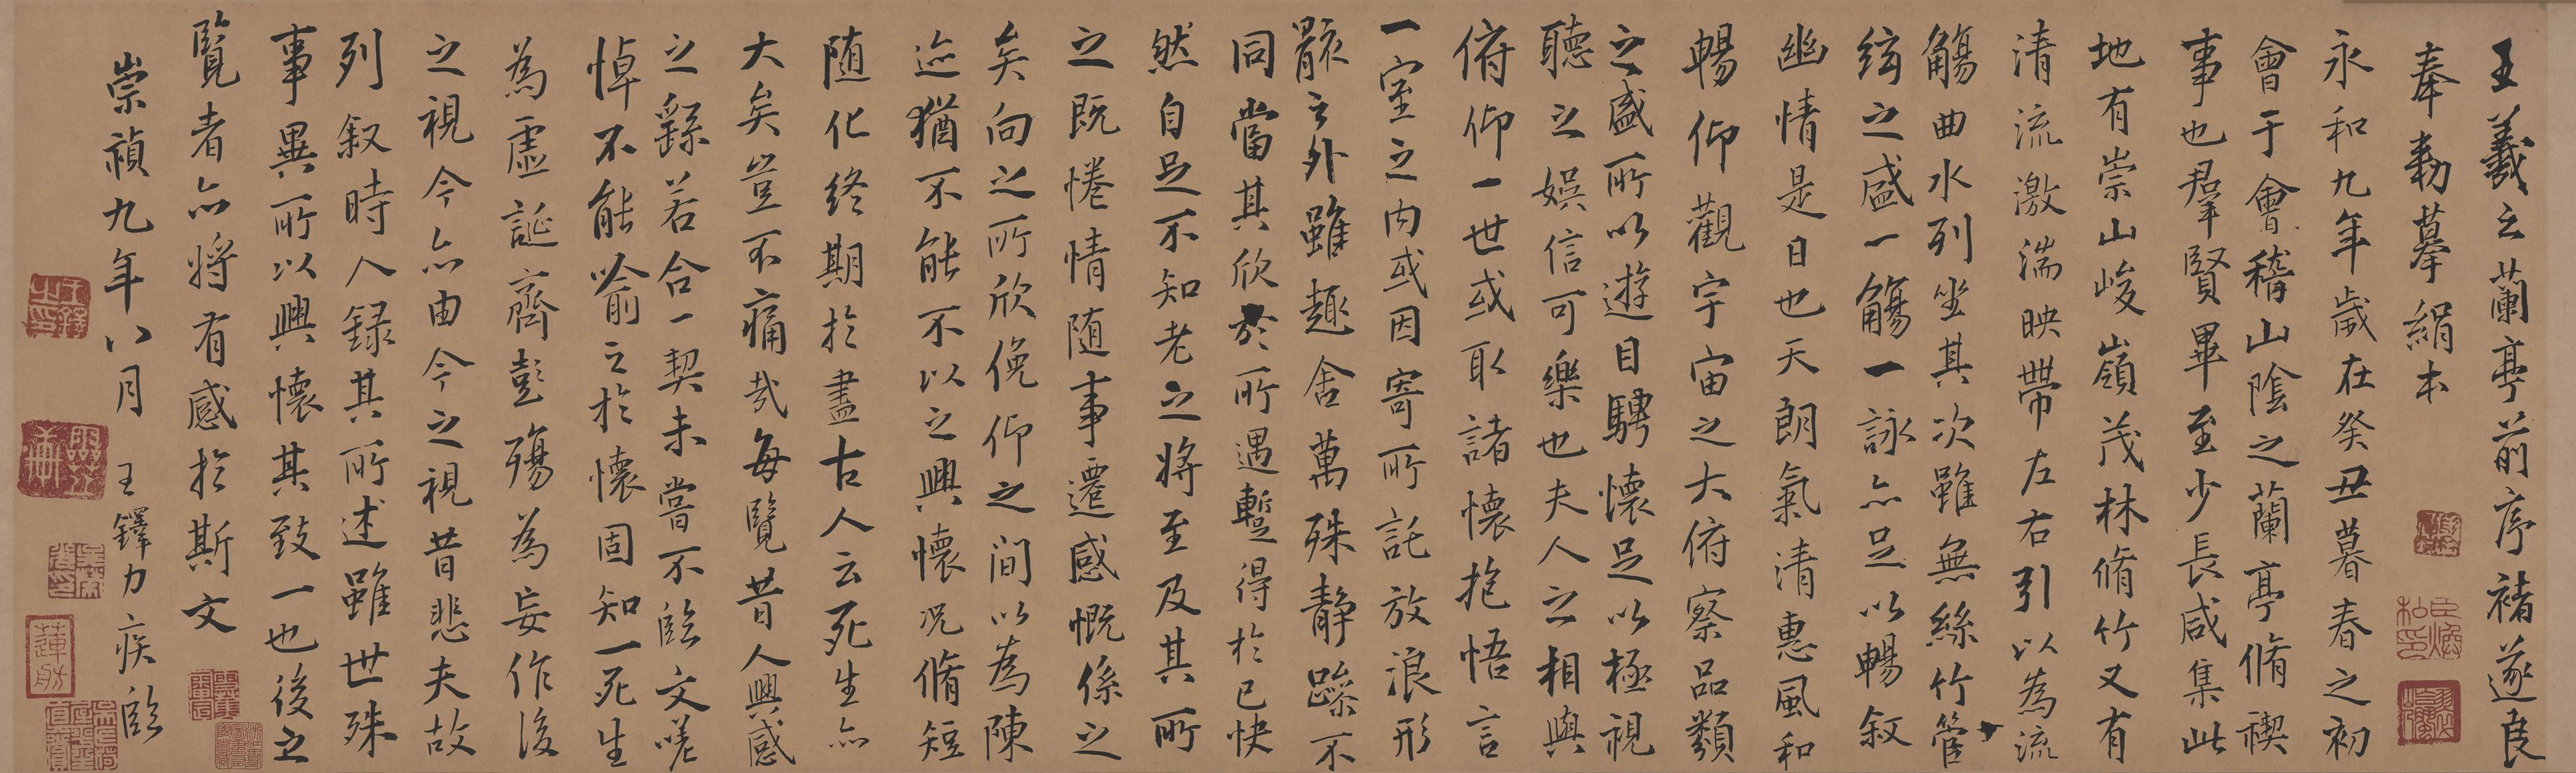 王羲之蘭亭前序褚遂良
奉勅摹絹本
永和九年歲在癸丑暮春之初
會于會稽山陰之蘭亭脩禊
事也羣賢畢至少長咸集此
地有崇山峻嶺茂林脩竹又有
清流激湍映帶左右引以為流
觴曲水列坐其次雖無絲竹管
絃之盛一觴一詠亦足以暢叙
幽情是日也天朗氣清惠風和
暢仰觀宇宙之大俯察品類
之盛所以遊目騁懷足以極視
聽之娛信可樂也夫人之相與
俯仰一世或取諸懷抱悟言
一室之内或因寄所託放浪形
骸之外雖趣舍萬殊静躁不
同當其欣於所遇蹔得於已快
然自足不知老之將至及其所
之既惓情随事遷感慨係之
矣向之所欣俛仰之間以為陳
迹猶不能不以之興懷况脩短
随化終期於盡古人云死生亦
大矣豈不痛哉每覽昔人興感
之繇若合一契未嘗不臨文嗟
悼不能喻之於懷固知一死生
為虛誕齊彭殤為妄作後
之視今亦由今之視昔悲夫故
列叙時人録其所述雖世殊
事異所以興懷其致一也後之
覽者亦將有感於斯文
崇禎九年八月 王鐸力疾臨
王鐸之印
蓮舫